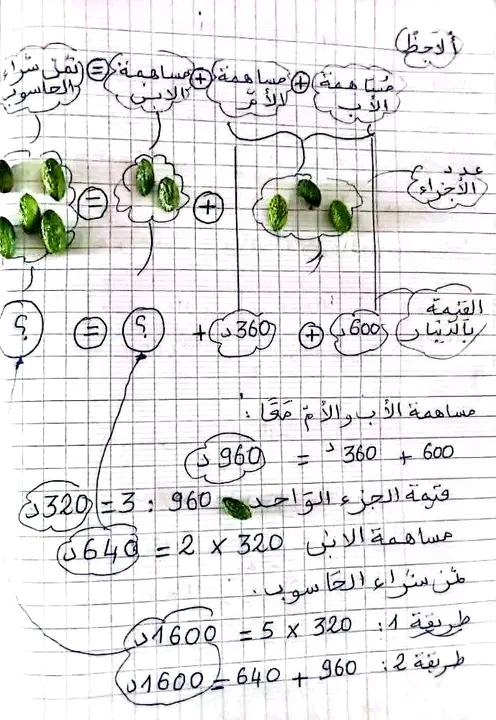 ألاحظ
مساهمة الأب + مساهمة الأمّ + مساهمة الابن = ثمن شراء الحاسوب
عدد الأجزاء
+ =
القيمة بالدينار
600د + 360د + ؟ = ؟
مساهمة الأب والأمّ مَعًا:
600 + 360 د = 960 د
قيمة الجزء الواحد 960 : 3 = 320 د
مساهمة الابن 320 × 2 = 640 د
ثمن شراء الحاسوب.
طريقة 1: 320 × 5 = 1600 د
طريقة 2: 960 + 640 = 1600 د